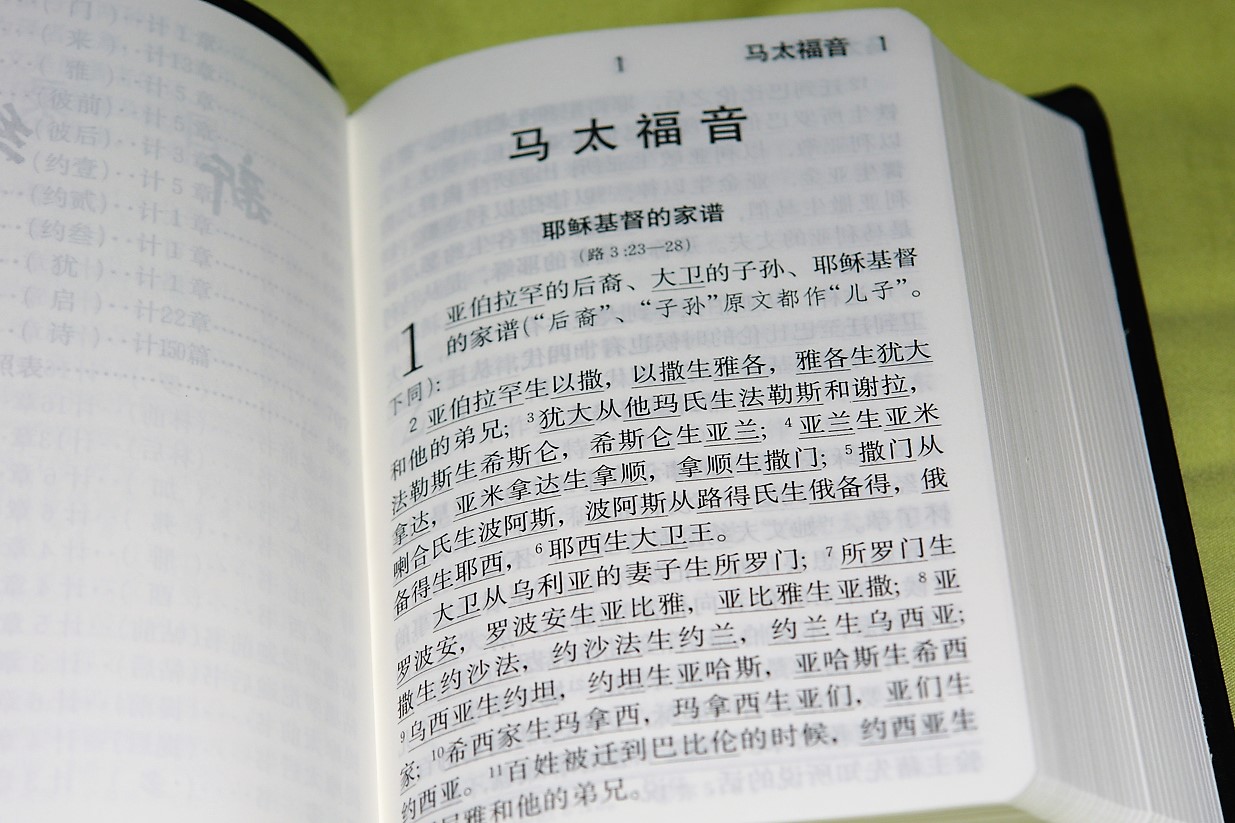 (门)··计1章
(来)··计13章
(雅)··计5章
(彼前)··计5章
(彼后)··计3章
(约壹)··计5章
(约贰)··计1章
(约叁)··计1章
(犹)··计1章
(启)··计22章
(诗)··计150篇
照表
1 马太福音 1
马太福音
耶稣基督的家谱
(路3:23—28)
1 亚伯拉罕的后裔、大卫的子孙、耶稣基督
的家谱(“后裔”、“子孙”原文都作“儿子”。
下同):
2 亚伯拉罕生以撒,以撒生雅各,雅各生犹大
和他的弟兄;3犹大从他玛氏生法勒斯和谢拉,
法勒斯生希斯仑,希斯仑生亚兰;4亚兰生亚米
拿达,亚米拿达生拿顺,拿顺生撒门;5撒门从
喇合氏生波阿斯,波阿斯从路得氏生俄备得,俄
备得生耶西,6耶西生大卫王。
大卫从乌利亚的妻子生所罗门;7所罗门生
罗波安,罗波安生亚比雅,亚比雅生亚撒;8亚
撒生约沙法,约沙法生约兰,约兰生乌西亚;
9乌西亚生约坦,约坦生亚哈斯,亚哈斯生希西
家;10希西家生玛拿西,玛拿西生亚们,亚们生
约西亚。11百姓被迁到巴比伦的时候,约西亚生
尼雅和他的弟兄。